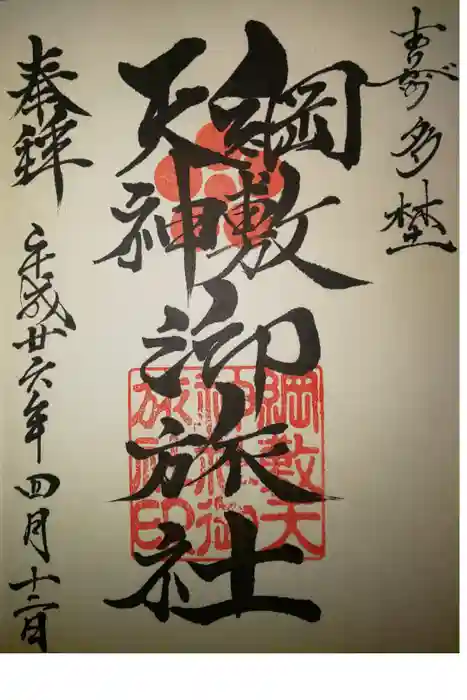 喜多埜
綱敷
天神
御旅社
綱敷天
神社御
旅社印
奉拝
平成廿六年四月十二日